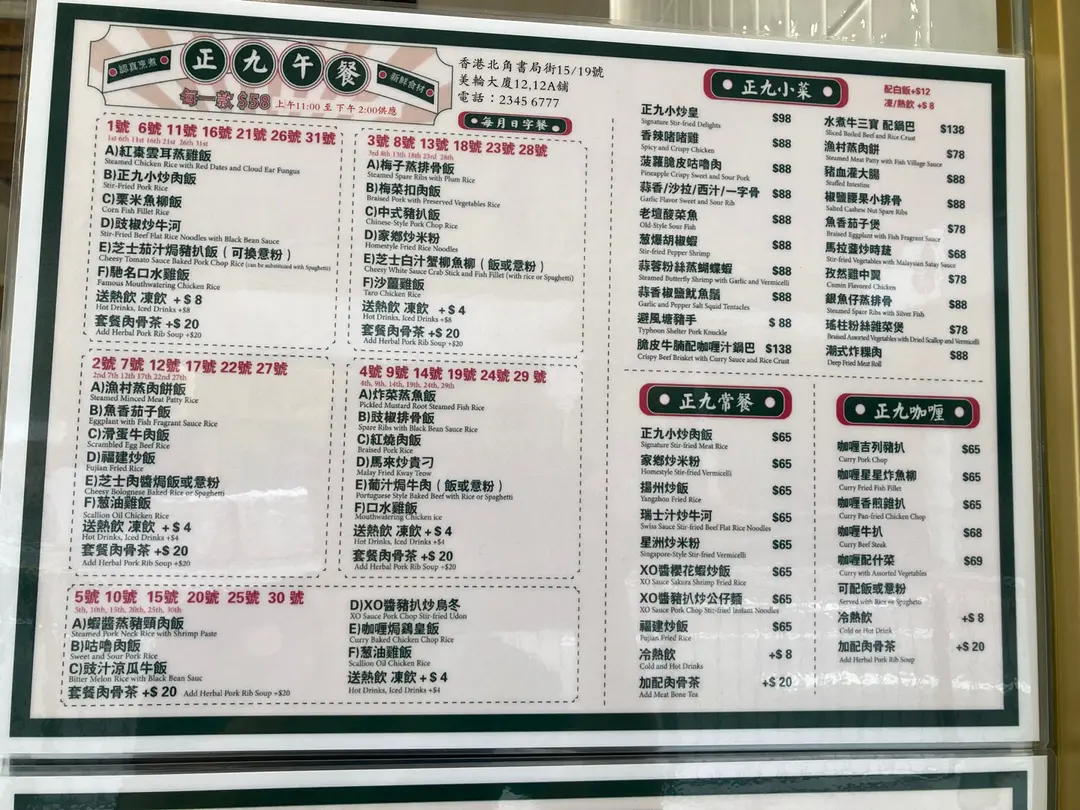 認真烹煮
正九午餐
新鮮食材
每一款 $58 上午11:00 至 下午 2:00供應
香港北角書局街15/19號
美輪大廈12,12A鋪
電話：2345 6777
每月日字餐
1號 6號 11號 16號 21號 26號 31號
1st 6th 11st 16th 21st 26th 31st
A)紅棗雲耳蒸雞飯
Steamed Chicken Rice with Red Dates and Cloud Ear Fungus
B)正九小炒肉飯
Stir-Fried Pork Rice
C)栗米魚柳飯
Corn Fish Fillet Rice
D)豉椒炒牛河
Stir-Fried Beef Flat Rice Noodles with Black Bean Sauce
E)芝士茄汁焗豬扒飯（可換意粉）
Cheesy Tomato Sauce Baked Pork Chop Rice (can be substituted with Spaghetti)
F)馳名口水雞飯
Famous Mouthwatering Chicken Rice
送熱飲 凍飲 +$ 8
Hot Drinks, Iced Drinks +$8
套餐肉骨茶 +$ 20
Add Herbal Pork Rib Soup +$20
3號 8號 13號 18號 23號 28號
3rd 8th 13th 18th 23rd 28th
A)梅子蒸排骨飯
Steamed Spare Ribs with Plum Rice
B)梅菜扣肉飯
Braised Pork with Preserved Vegetables Rice
C)中式豬扒飯
Chinese-Style Pork Chop Rice
D)家鄉炒米粉
Homestyle Fried Rice Noodles
E)芝士白汁蟹柳魚柳（飯或意粉）
Cheesy White Sauce Crab Stick and Fish Fillet (with rice or Spaghetti)
F)沙薑雞飯
Taro Chicken Rice
送熱飲 凍飲 +$ 4
Hot Drinks, Iced Drinks +$8
套餐肉骨茶 +$ 20
Add Herbal Pork Rib Soup +$20
2號 7號 12號 17號 22號 27號
2nd 7th 12th 17th 22nd 27th
A)漁村蒸肉餅飯
Steamed Minced Meat Patty Rice
B)魚香茄子飯
Eggplant with Fish Fragrant Sauce Rice
C)滑蛋牛肉飯
Scrambled Egg Beef Rice
D)福建炒飯
Fujian Fried Rice
E)芝士肉醬焗飯或意粉
Cheesy Bolognese Baked Rice or Spaghetti
F)葱油雞飯
Scallion Oil Chicken Rice
送熱飲 凍飲 +$ 4
Hot Drinks, Iced Drinks +$4
套餐肉骨茶 +$ 20
Add Herbal Pork Rib Soup +$20
4號 9號 14號 19號 24號 29 號
4th, 9th, 14th, 19th, 24th, 29th
A)炸菜蒸魚飯
Pickled Mustard Root Steamed Fish Rice
B)豉椒排骨飯
Spare Ribs with Black Bean Sauce Rice
C)紅燒肉飯
Braised Pork Rice
D)馬來炒貴刁
Malay Fried Kway Teow
E)葡汁焗牛肉（飯或意粉）
Portuguese Style Baked Beef with Rice or Spaghetti
F)口水雞飯
Mouthwatering Chicken ice
送熱飲 凍飲 +$ 4
Hot Drinks, Iced Drinks +$4
套餐肉骨茶 +$ 20
Add Herbal Pork Rib Soup +$20
5號 10號 15號 20號 25號 30 號
5th, 10th, 15th, 20th, 25th, 30th
A)蝦醬蒸豬頸肉飯
Steamed Pork Neck Rice with Shrimp Paste
B)咕嚕肉飯
Sweet and Sour Pork Rice
C)豉汁涼瓜牛飯
Bitter Melon Rice with Black Bean Sauc
套餐肉骨茶 +$ 20 Add Herbal Pork Rib Soup +$20
D)XO醬豬扒炒烏冬
XO Sauce Pork Chop Stir-fried Udon
E)咖喱焗鷄皇飯
Curry Baked Chicken Chop Rice
F)葱油雞飯
Scallion Oil Chicken Rice
送熱飲 凍飲 +$ 4
Hot Drinks, Iced Drinks +$4
正九小菜
配白飯+$12
凍/熱飲 +$ 8
正九小炒皇 $98
Signature Stir-fried Delights
香辣啫啫雞 $88
Spicy and Crispy Chicken
菠蘿脆皮咕嚕肉 $88
Pineapple Crispy Sweet and Sour Pork
蒜香/沙拉/西汁/一字骨 $88
Garlic Flavor Sweet and Sour Rib
老壇酸菜魚 $88
Old-Style Sour Fish
葱爆胡椒蝦 $88
Stir-fried Pepper Shrimp
蒜蓉粉絲蒸蝴蝶蝦 $88
Steamed Butterfly Shrimp with Garlic and Vermicelli
蒜香椒鹽魷魚鬚 $88
Garlic and Pepper Salt Squid Tentacles
避風塘豬手 $ 88
Typhoon Shelter Pork Knuckle
脆皮牛腩配咖喱汁鍋巴 $138
Crispy Beef Brisket with Curry Sauce and Rice Crust
水煮牛三寶 配鍋巴 $138
Sliced Boiled Beef and Rice Crust
漁村蒸肉餅 $78
Steamed Meat Patty with Fish Village Sauce
豬血灌大腸 $88
Stuffed Intestine
椒鹽腰果小排骨 $88
Salted Cashew Nut Spare Ribs
魚香茄子煲 $78
Braised Eggplant with Fish Fragrant Sauce
馬拉盞炒時蔬 $68
Stir-fried Vegetables with Malaysian Satay Sauce
孜然雞中翼 $78
Cumin Flavored Chicken
銀魚仔蒸排骨 $88
Steamed Spare Ribs with Silver Fish
瑤柱粉絲雜菜煲 $78
Braised Assorted Vegetables with Dried Scallop and Vermicelli
潮式炸粿肉 $88
Deep Fried Meat Roll
正九常餐
正九小炒肉飯 $65
Signature Stir-fried Meat Rice
家鄉炒米粉 $65
Homestyle Stir-fried Vermicelli
揚州炒飯 $65
Yangzhou Fried Rice
瑞士汁炒牛河 $65
Swiss Sauce Stir-fried Beef Flat Rice Noodles
星洲炒米粉 $65
Singapore-Style Stir-fried Vermicelli
XO醬櫻花蝦炒飯 $65
XO Sauce Sakura Shrimp Fried Rice
XO醬豬扒炒公仔麵 $65
XO Sauce Pork Chop Stir-fried Instant Noodles
福建炒飯 $65
Fujian Fried Rice
冷熱飲 +$ 8
Cold and Hot Drinks
加配肉骨茶 +$ 20
Add Meat Bone Tea
正九咖喱
咖喱吉列豬扒 $65
Curry Pork Chop
咖喱星星炸魚柳 $65
Curry Fried Fish Fillet
咖喱香煎雞扒 $65
Curry Pan-fried Chicken Chop
咖喱牛扒 $68
Curry Beef Steak
咖喱配什菜 $69
Curry with Assorted Vegetables
可配飯或意粉
Served with Rice or Spaghetti
冷熱飲 +$ 8
Cold or Hot Drink
加配肉骨茶 +$ 20
Add Herbal Pork Rib Soup